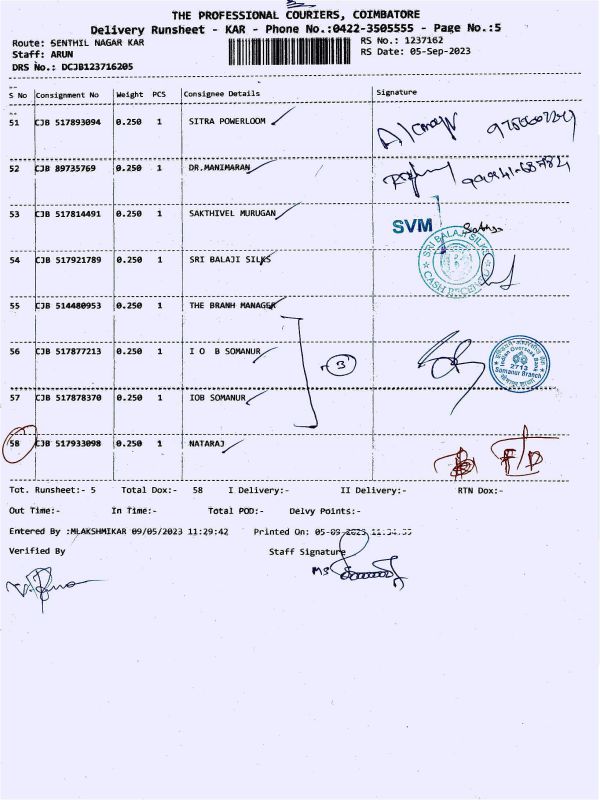 THE PROFESSIONAL COURIERS, COIMBATORE
Delivery Runsheet - KAR - Phone No.:0422-3505555 - Page No.:5
Route: SENTHIL NAGAR KAR
RS No.: 1237162
Staff: ARUN
RS Date: 05-Sep-2023
DRS No.: DCJB123716205
S No Consignment No Weight PCS Consignee Details Signature
51 CJB 517893094 0.250 1 SITRA POWERLOOM
52 CJB 89735769 0.250 1 DR.MANIMARAN
53 CJB 517814491 0.250 1 SAKTHIVEL MURUGAN
SVM
54 CJB 517921789 0.250 1 SRI BALAJI SILKS
SRI BALAJI SILKS
CASH RECEIVED
55 CJB 514480953 0.250 1 THE BRANH MANAGER
56 CJB 517877213 0.250 1 I O B SOMANUR
3
Indian Overseas Bank
2713
Somanur Branch
57 CJB 517878370 0.250 1 IOB SOMANUR
58 CJB 517933098 0.250 1 NATARAJ
Tot. Runsheet:- 5 Total Dox:- 58 I Delivery:- II Delivery:- RTN Dox:-
Out Time:- In Time:- Total POD:- Delvy Points:-
Entered By :MLAKSHMIKAR 09/05/2023 11:29:42 Printed On: 05-09-2023
Verified By Staff Signature